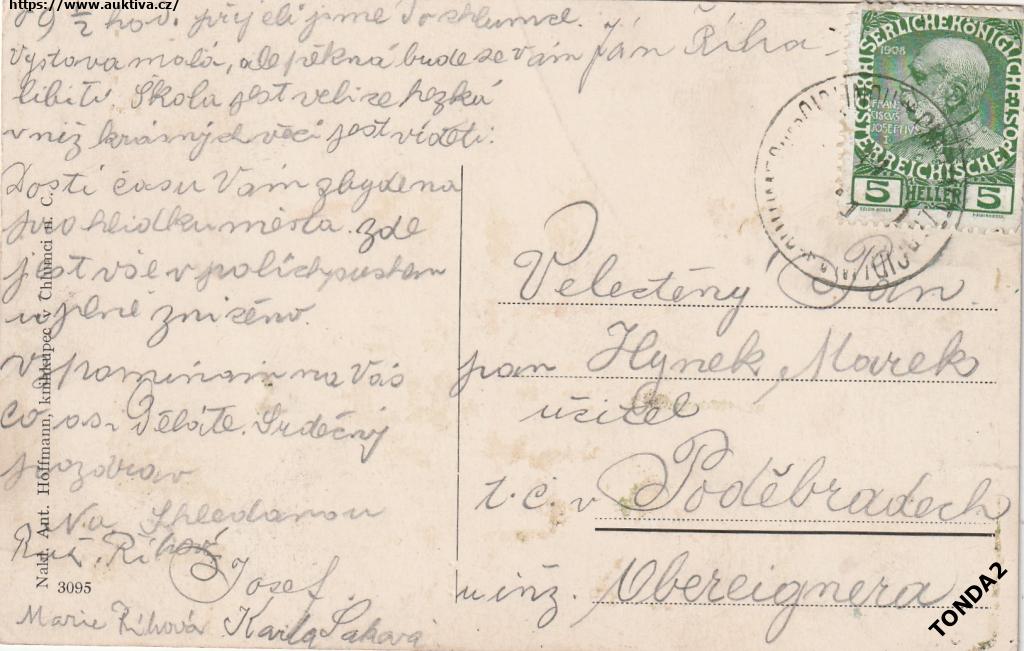 https://www.auktiva.cz/
v 9 1/2 hod. přijeli jsme do Chlumce.
Výstava malá, ale pěkná bude se Vám
líbiti Škola jest velice hezká
v níž krásných věcí jest viděti.
Dosti času Vám zbyde na
prohlídku města. zde
jest vše v polích suchem
úplně zničeno.
Vzpomínám na Vás
co asi Děláte. Srdečný
pozdrav
Na Shledanou
Růž. Říhová
Josef
Marie Říhová Karla
Jan Říha
KAISERLICHE KÖNIGLICHE ÖSTERREICHISCHE POST
1908
FRANCISCUS JOSEPHUS I
5 HELLER 5
Veléctěný Pán
pan Hynek Marek
učitel
t. č. v Poděbradech
u inž. Obereignera
Nakl. Ant. Hoffmann, knihkupec v Chlumci n. C.
3095
TONDA2